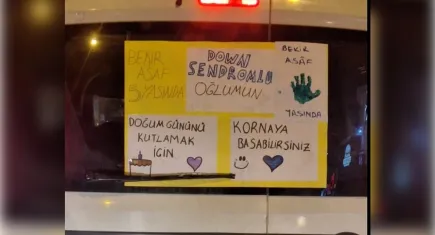 BEKİR
ASAF
5 YAŞINDA
DOWN
SENDROMLU
OĞLUMUN
BEKİR
ASAF
YAŞINDA
DOĞUM GÜNÜNÜ
KUTLAMAK
İÇİN
KORNAYA
BASABİLİRSİNİZ